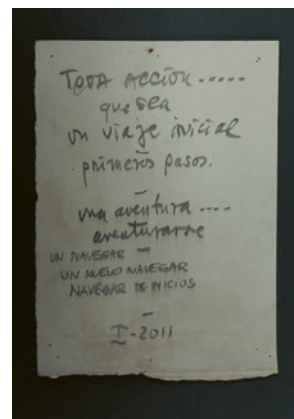 TODA ACCIÓN.....
que sea
un viaje inicial
primeros pasos.
–
una aventura....
aventurarse
–
UN NAVEGAR
UN NUEVO NAVEGAR
NAVEGAR DE INICIOS
–
I-2011